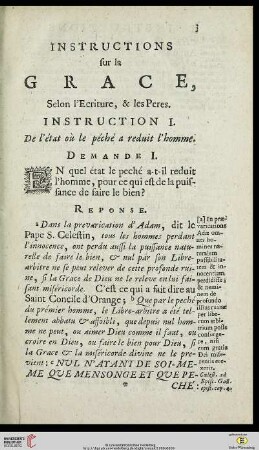 3
INSTRUCTIONS
sur la
GRACE,
Selon l'Ecriture, & les Peres.
INSTRUCTION I.
De l'état où le péché a reduit l'homme.
DEMANDE I.
EN quel état le peché a-t-il reduit
l'homme, pour ce qui est de la puis-
sance de faire le bien?
REPONSE.
a Dans la prevarication d'Adam, dit le
Pape S. Celestin, tous les hommes perdant
l'innocence, ont perdu aussi la puissance natu-
relle de faire le bien, & nul par son Libre-
arbitre ne se peut relever de cette profonde rui-
ne, si la Grace de Dieu ne le releve en lui fai-
sant misericorde. C'est ce qui a fait dire au
Saint Concile d'Orange; b Que par le peché
du prémier homme, le Libre-arbitre a été tel-
lement abbatu & affoibli, que depuis nul hom-
me ne peut, ou aimer Dieu comme il faut, ou
croire en Dieu, ou faire le bien pour Dieu, si
la Grace & la misericorde divine ne le pre-
vient; c NUL N'AYANT DE SOI-MÊ-
ME QUE MENSONGE ET QUE PE-
CHÉ
[a] In præ-
varicatione
Adæ om-
nes ho-
mines na-
turalem
possibilita-
tem & in-
nocentiam
perdidisse;
& nemi-
nem de
profundo
illius ruinæ
per libe-
rum arbi-
trium posse
consurge-
re, nisi
eum gratia
Dei mise-
rentis ere-
xerit.
Cælest. ad
Episc. Gall.